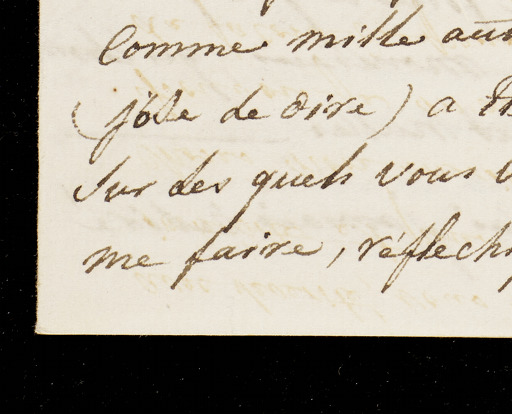 Comme mille aut
(j'ose de dire) a
Sur des quels vous
me faire, réflech